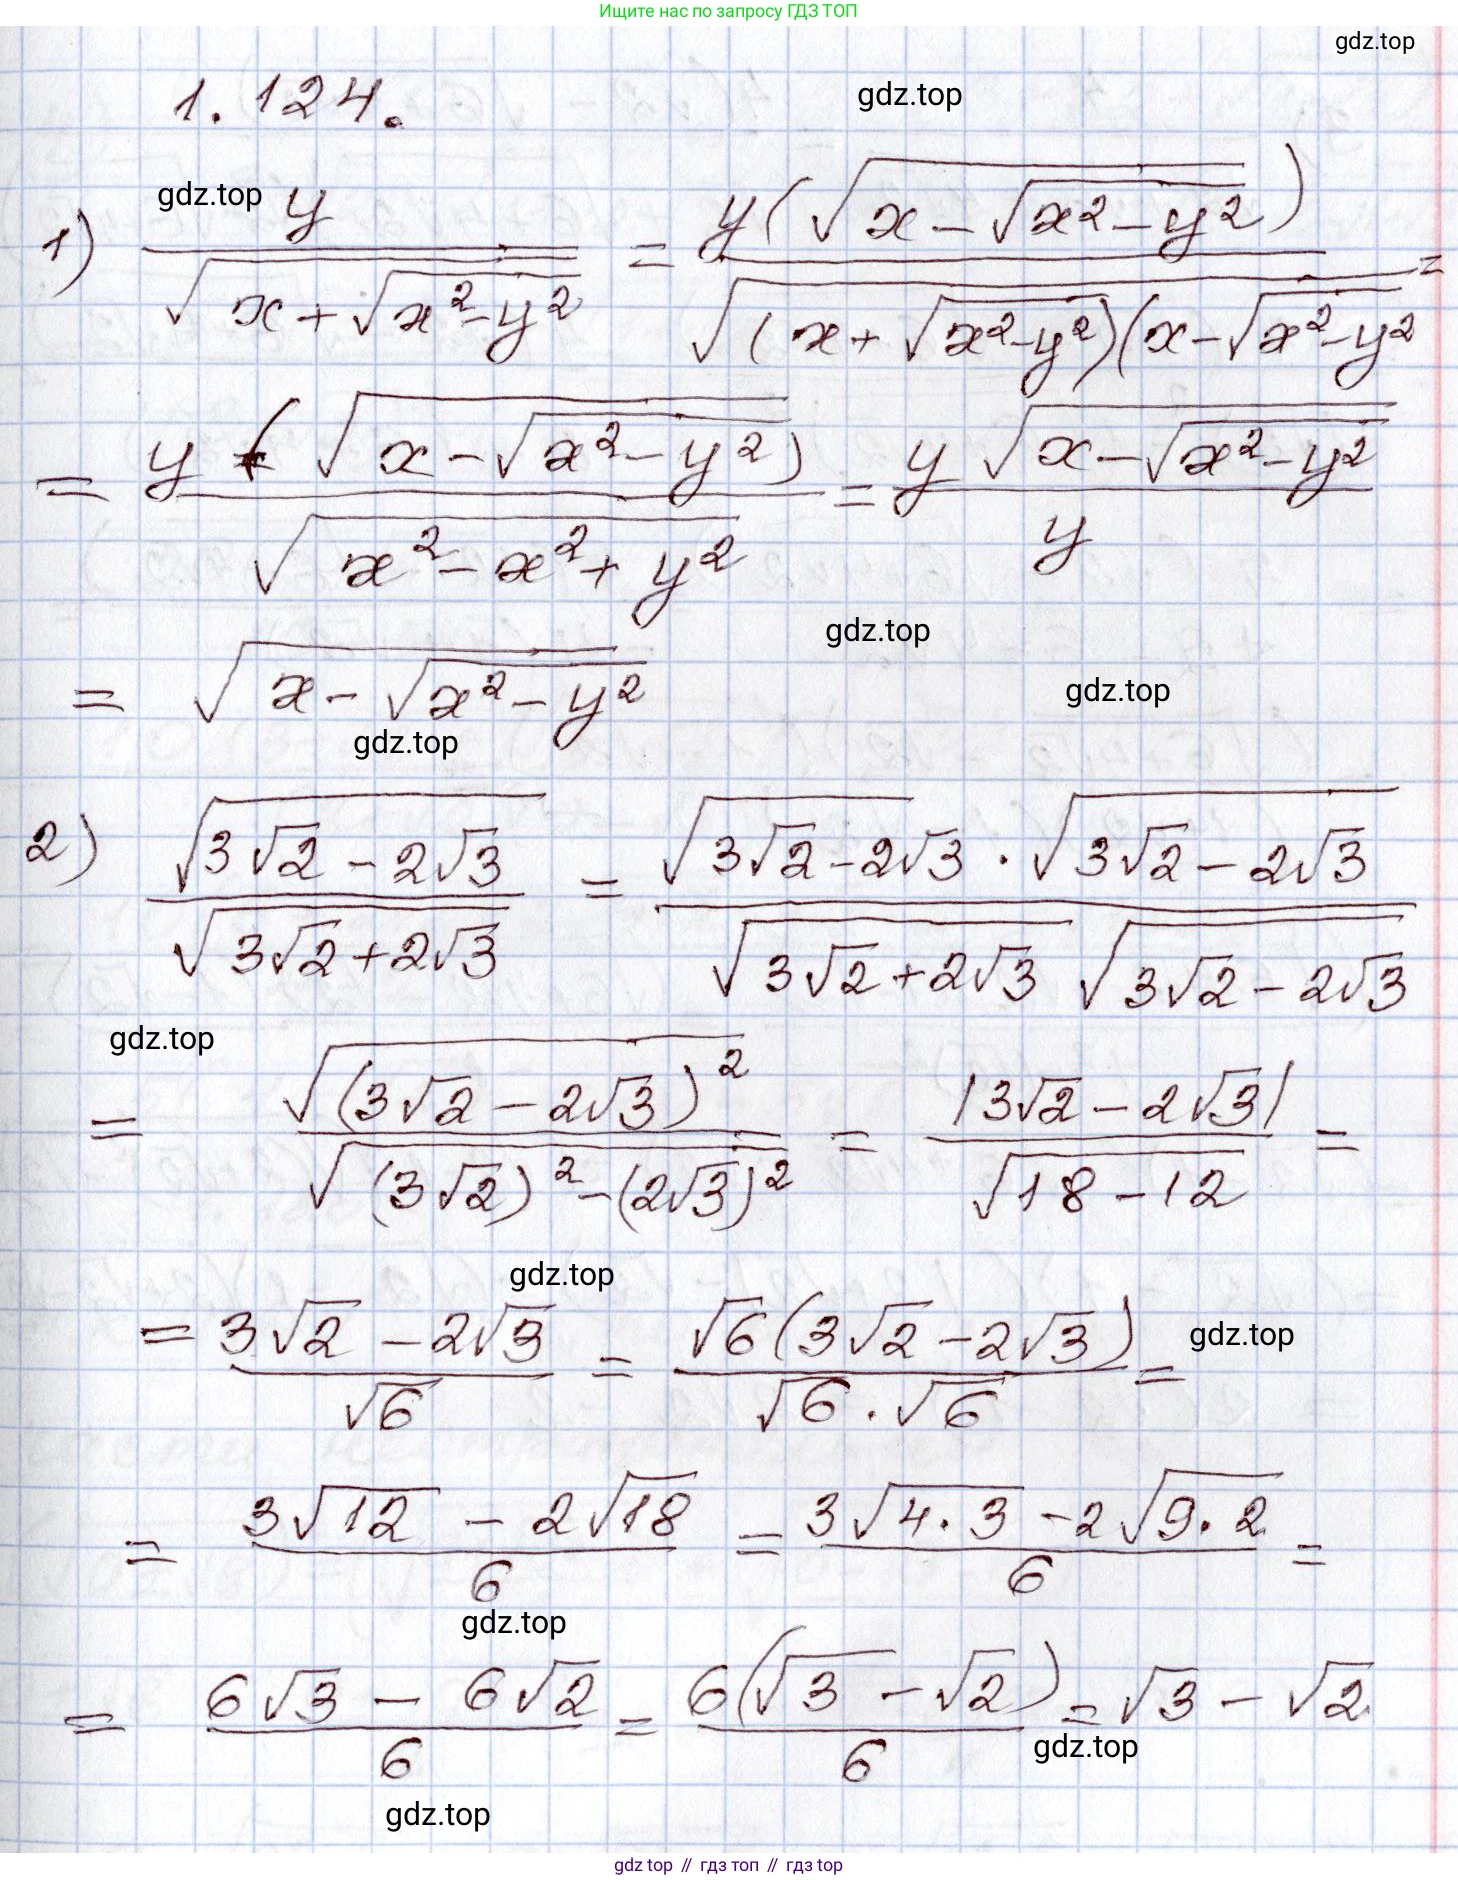 Ищите нас по запросу ГДЗ ТОП
gdz.top
1.124.
gdz.top
gdz.top
1) y / √(x + √(x² - y²)) = y(√(x - √(x² - y²))) / √((x + √(x² - y²))(x - √(x² - y²) =
= y (√(x - √(x² - y²))) / √(x² - x² + y²) = y √(x - √(x² - y²)) / y
gdz.top
= √(x - √(x² - y²))
gdz.top
gdz.top
2) √(3√2 - 2√3) / √(3√2 + 2√3) = √(3√2 - 2√3) · √(3√2 - 2√3) / √(3√2 + 2√3) √(3√2 - 2√3)
gdz.top
= √((3√2 - 2√3)²) / √((3√2)² - (2√3)²) = |3√2 - 2√3| / √(18 - 12) =
gdz.top
= (3√2 - 2√3) / √6 = √6(3√2 - 2√3) / (√6 · √6) =
gdz.top
= (3√12 - 2√18) / 6 = (3√(4·3) - 2√(9·2)) / 6 =
gdz.top
= (6√3 - 6√2) / 6 = 6(√3 - √2) / 6 = √3 - √2
gdz.top
gdz.top
gdz top // гдз топ // гдз top